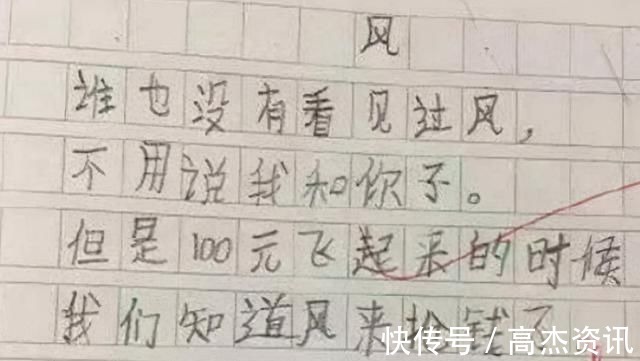 风
谁也没有看见过风，
不用说我和你了。
但是100元飞起来的时候
我们知道风来抢钱了
快传号／高杰资讯